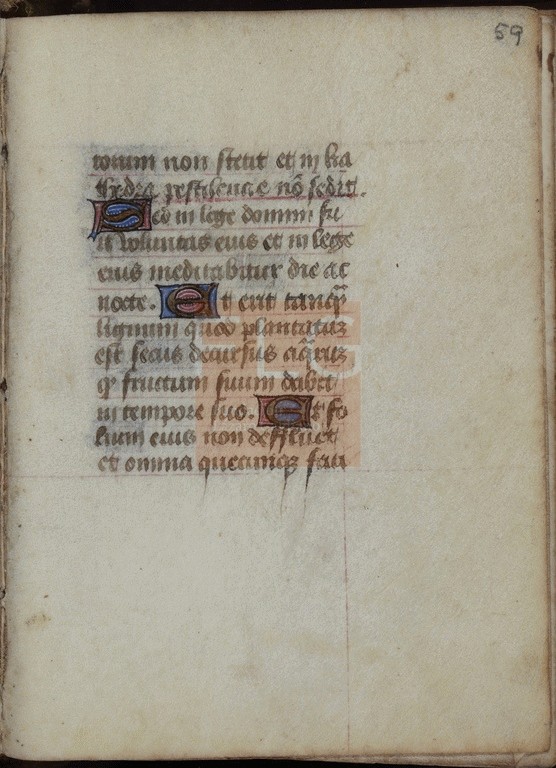 59
torum non stetit et in ka
thedra pestilencie nō sedit.
Sed in lege domini fu
it voluntas eius et in lege
eius meditabitur die ac
nocte. Et erit tanqͣ
lignum quod plantatuꝫ
est secus decursus aq̄ruꝫ
qͥ fructum suum dabit
in tempore suo. Et fo
lium eius non deffluet
et omnia quecunqꝫ faci
FLG